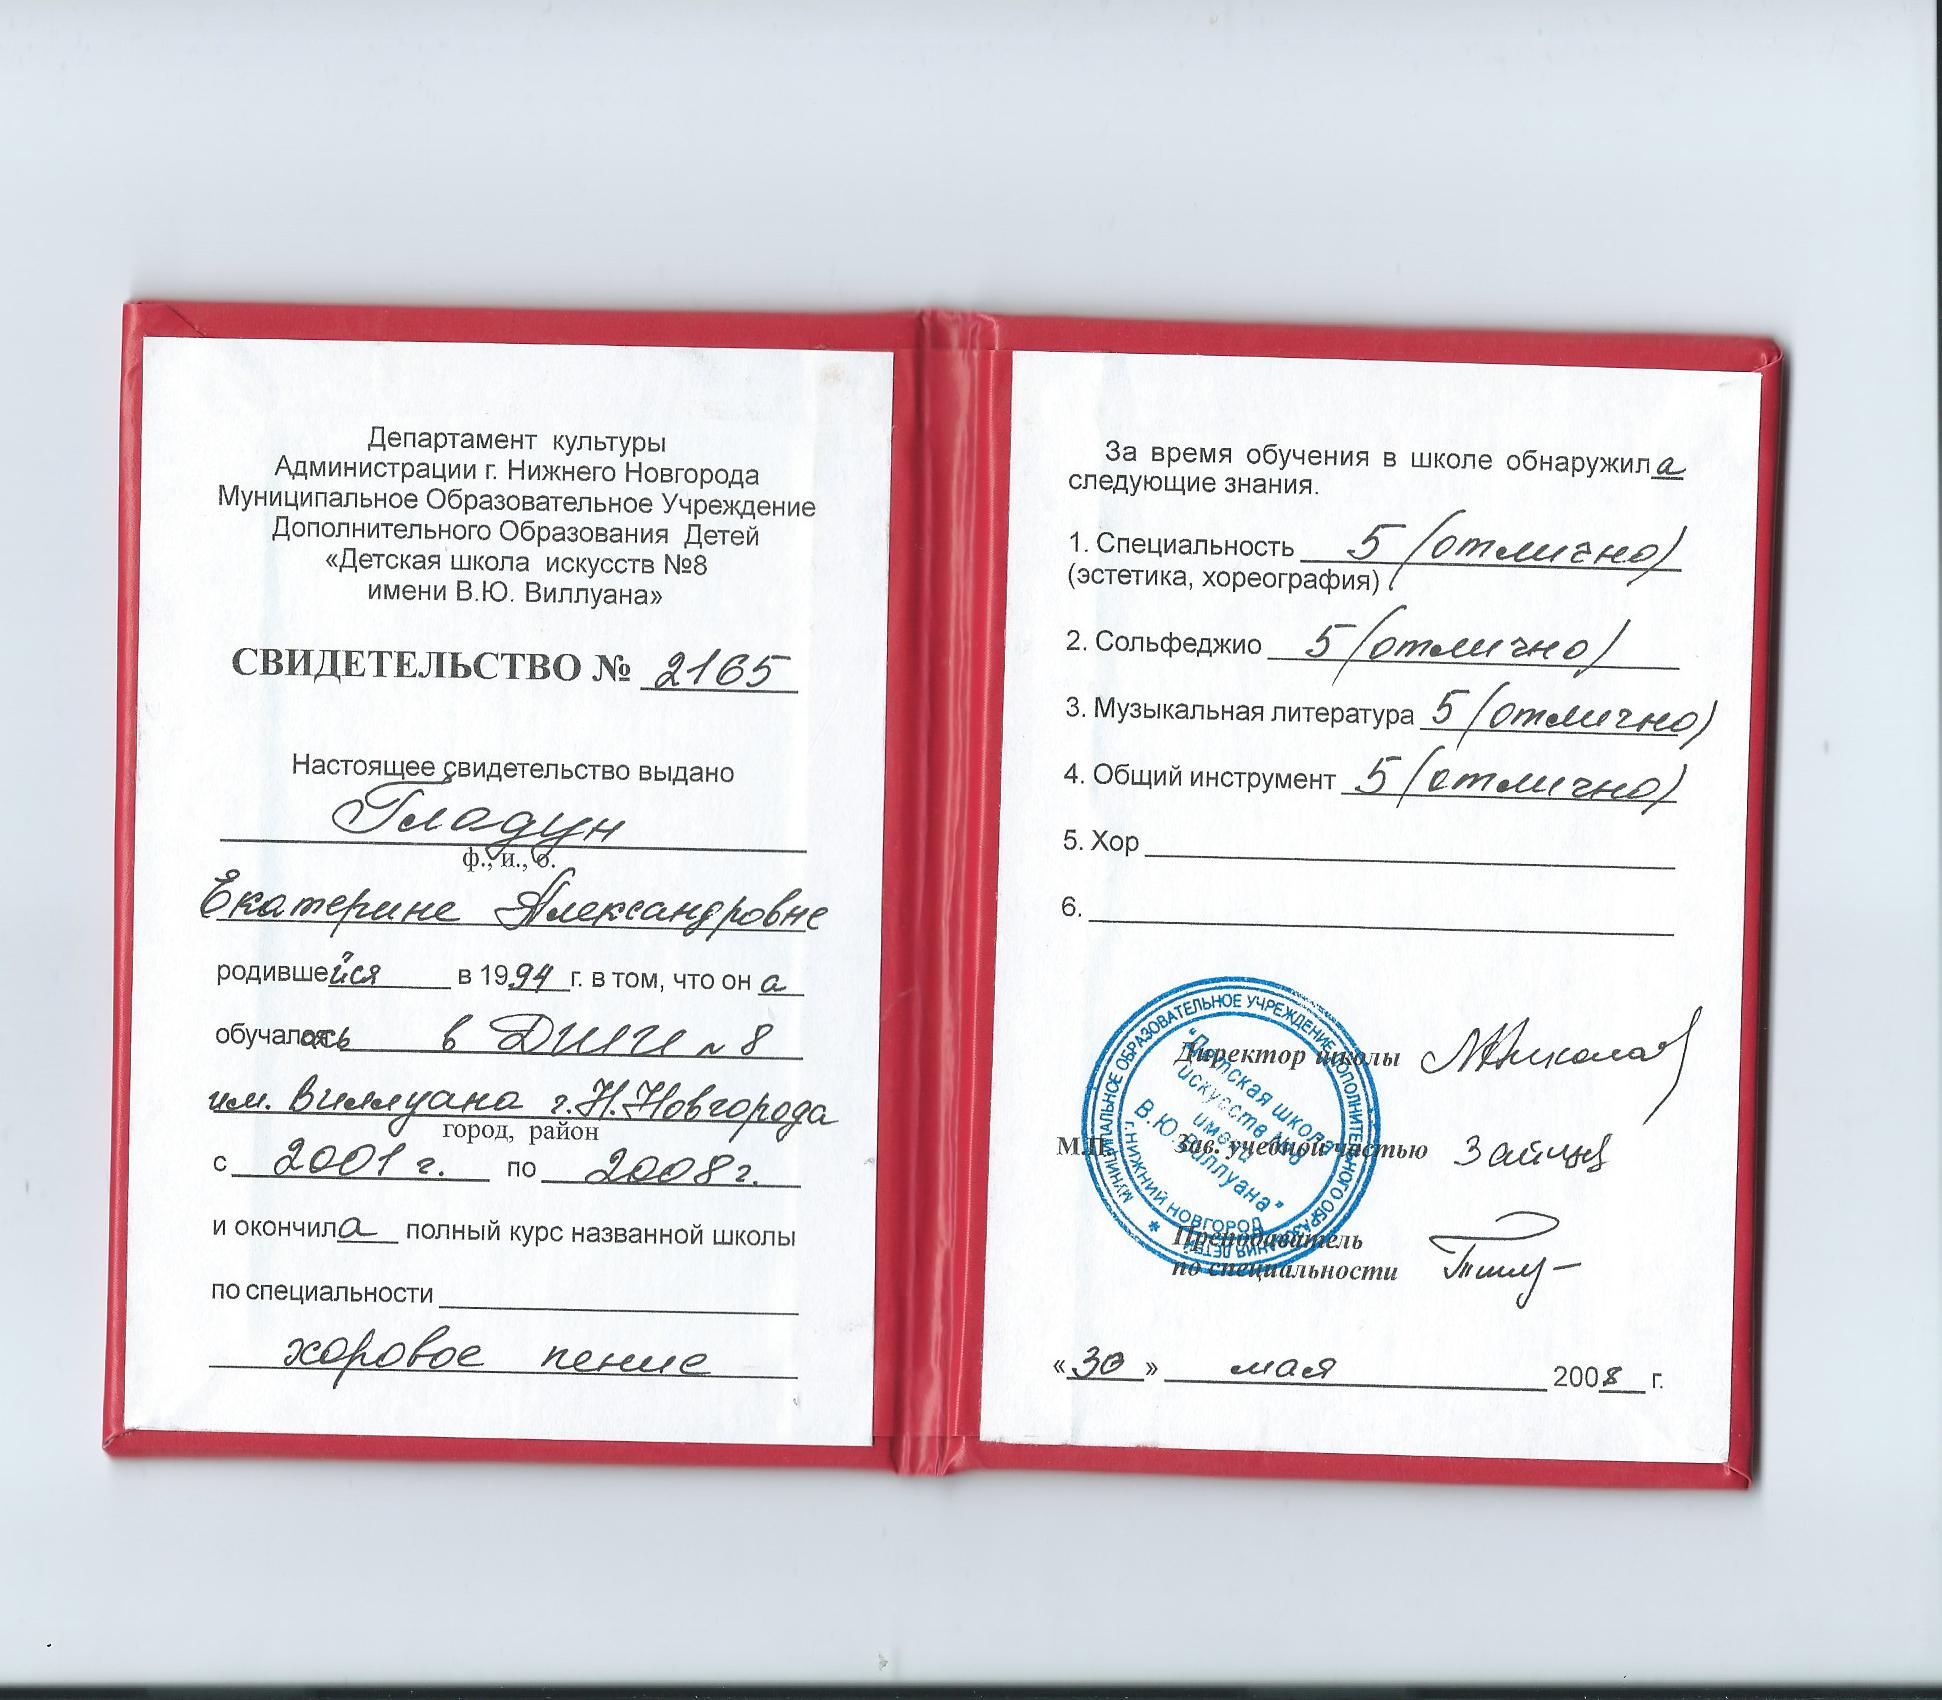 Департамент культуры
Администрации г. Нижнего Новгорода
Муниципальное Образовательное Учреждение
Дополнительного Образования Детей
«Детская школа искусств №8
имени В.Ю. Виллуана»
СВИДЕТЕЛЬСТВО № 2165
Настоящее свидетельство выдано
Гладун
ф., и., о.
Екатерине Александровне
родившейся в 1994 г. в том, что он а
обучалась в ДШИ №8
им. Виллуана г. Н.Новгорода
город, район
с 2001 г. по 2008 г.
и окончила полный курс названной школы
по специальности
хоровое пение
За время обучения в школе обнаружила
следующие знания.
1. Специальность 5 (отлично)
(эстетика, хореография)
2. Сольфеджио 5 (отлично)
3. Музыкальная литература 5 (отлично)
4. Общий инструмент 5 (отлично)
5. Хор
6.
Директор школы
М.П. Зав. учебной частью
Преподаватель
по специальности
«30» мая 2008 г.
МУНИЦИПАЛЬНОЕ ОБРАЗОВАТЕЛЬНОЕ УЧРЕЖДЕНИЕ ДОПОЛНИТЕЛЬНОГО ОБРАЗОВАНИЯ ДЕТЕЙ
г. НИЖНИЙ НОВГОРОД
"Детская школа
искусств №8
имени
В.Ю. Виллуана"